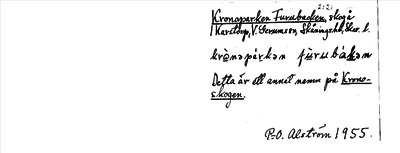 2:21
Kronoparken Furubacken, skog å
Karstorp, V. Gerumsson, Skånings hd, Skar. l.
krɷnəpárkən fùrubákən
Detta är ett annat namn på Krono-
skogen.
P-O. Alström 1955.